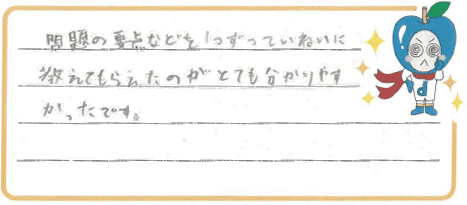 問題の要点などを1つずつていねいに
教えてもらえたのがとても分かりやす
かったです。
d